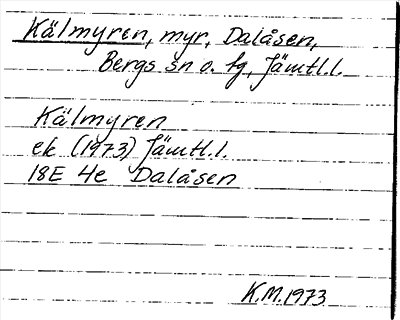 Kälmyren, myr, Dalåsen,
Bergs sn o. fg, Jämtl.l.
Kälmyren
ek (1973) Jämtl.l.
18E 4e Dalåsen
K.M.1973